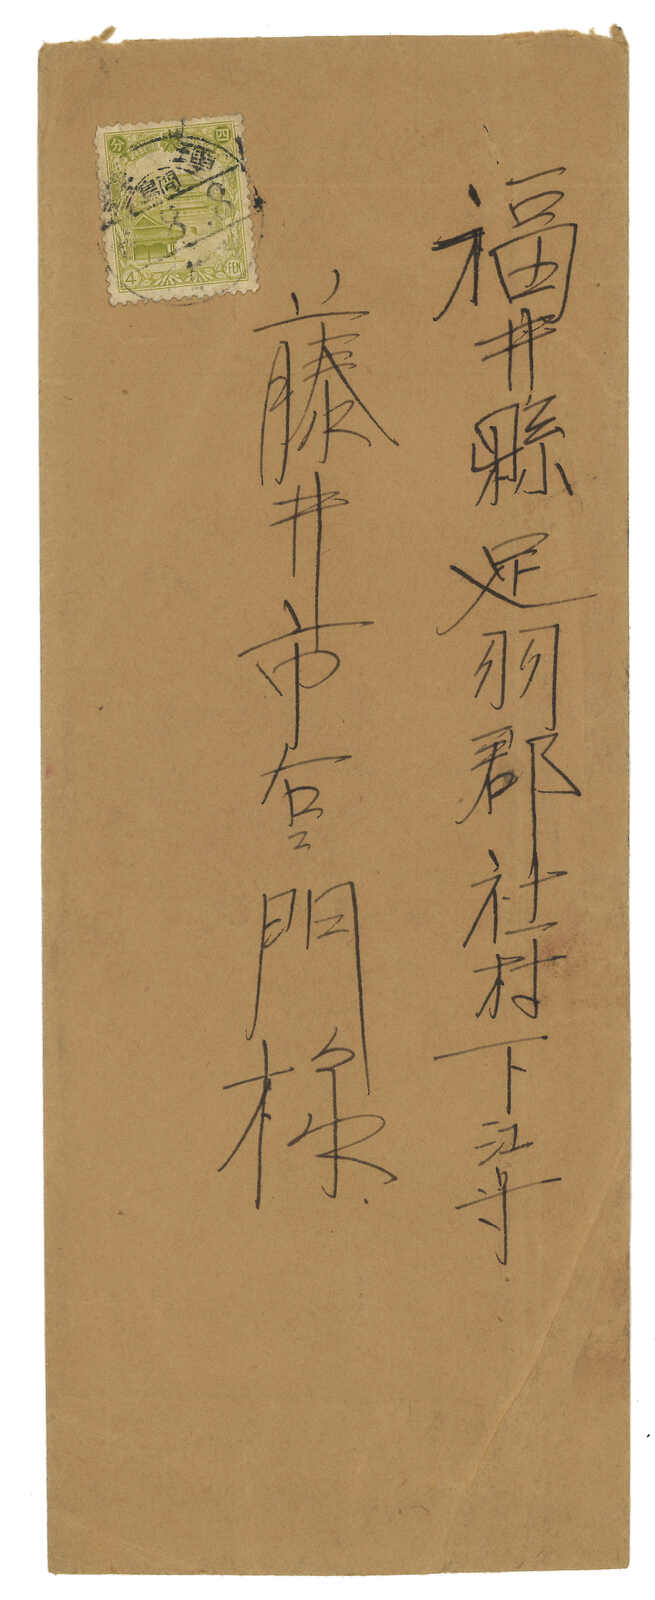 福井縣足羽郡社村下江守
藤井市右エ門様
四
分
4